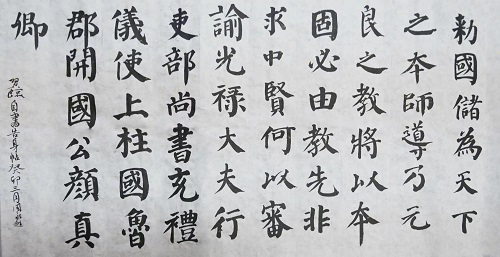 勅國儲為天下
之本師導乃元
良之教將以本
固必由教先非
求中賢何以審
諭光祿大夫行
吏部尚書充禮
儀使上柱國魯
郡開國公顏真
卿
臨自書告身帖癸卯三月